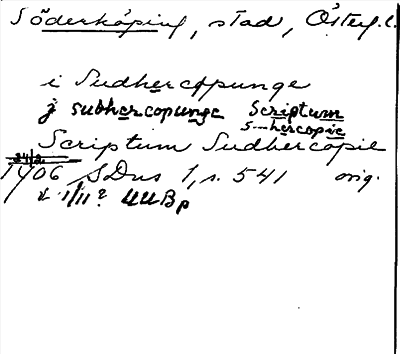 Söderköping, stad, Österg.l.
i Sudhercopunge
j sudhercopunge Scriptum
S---hercopie
Scriptum Sudhercopie
24/2
1406 SDns 1, s. 541 orig.
1/11? UUB